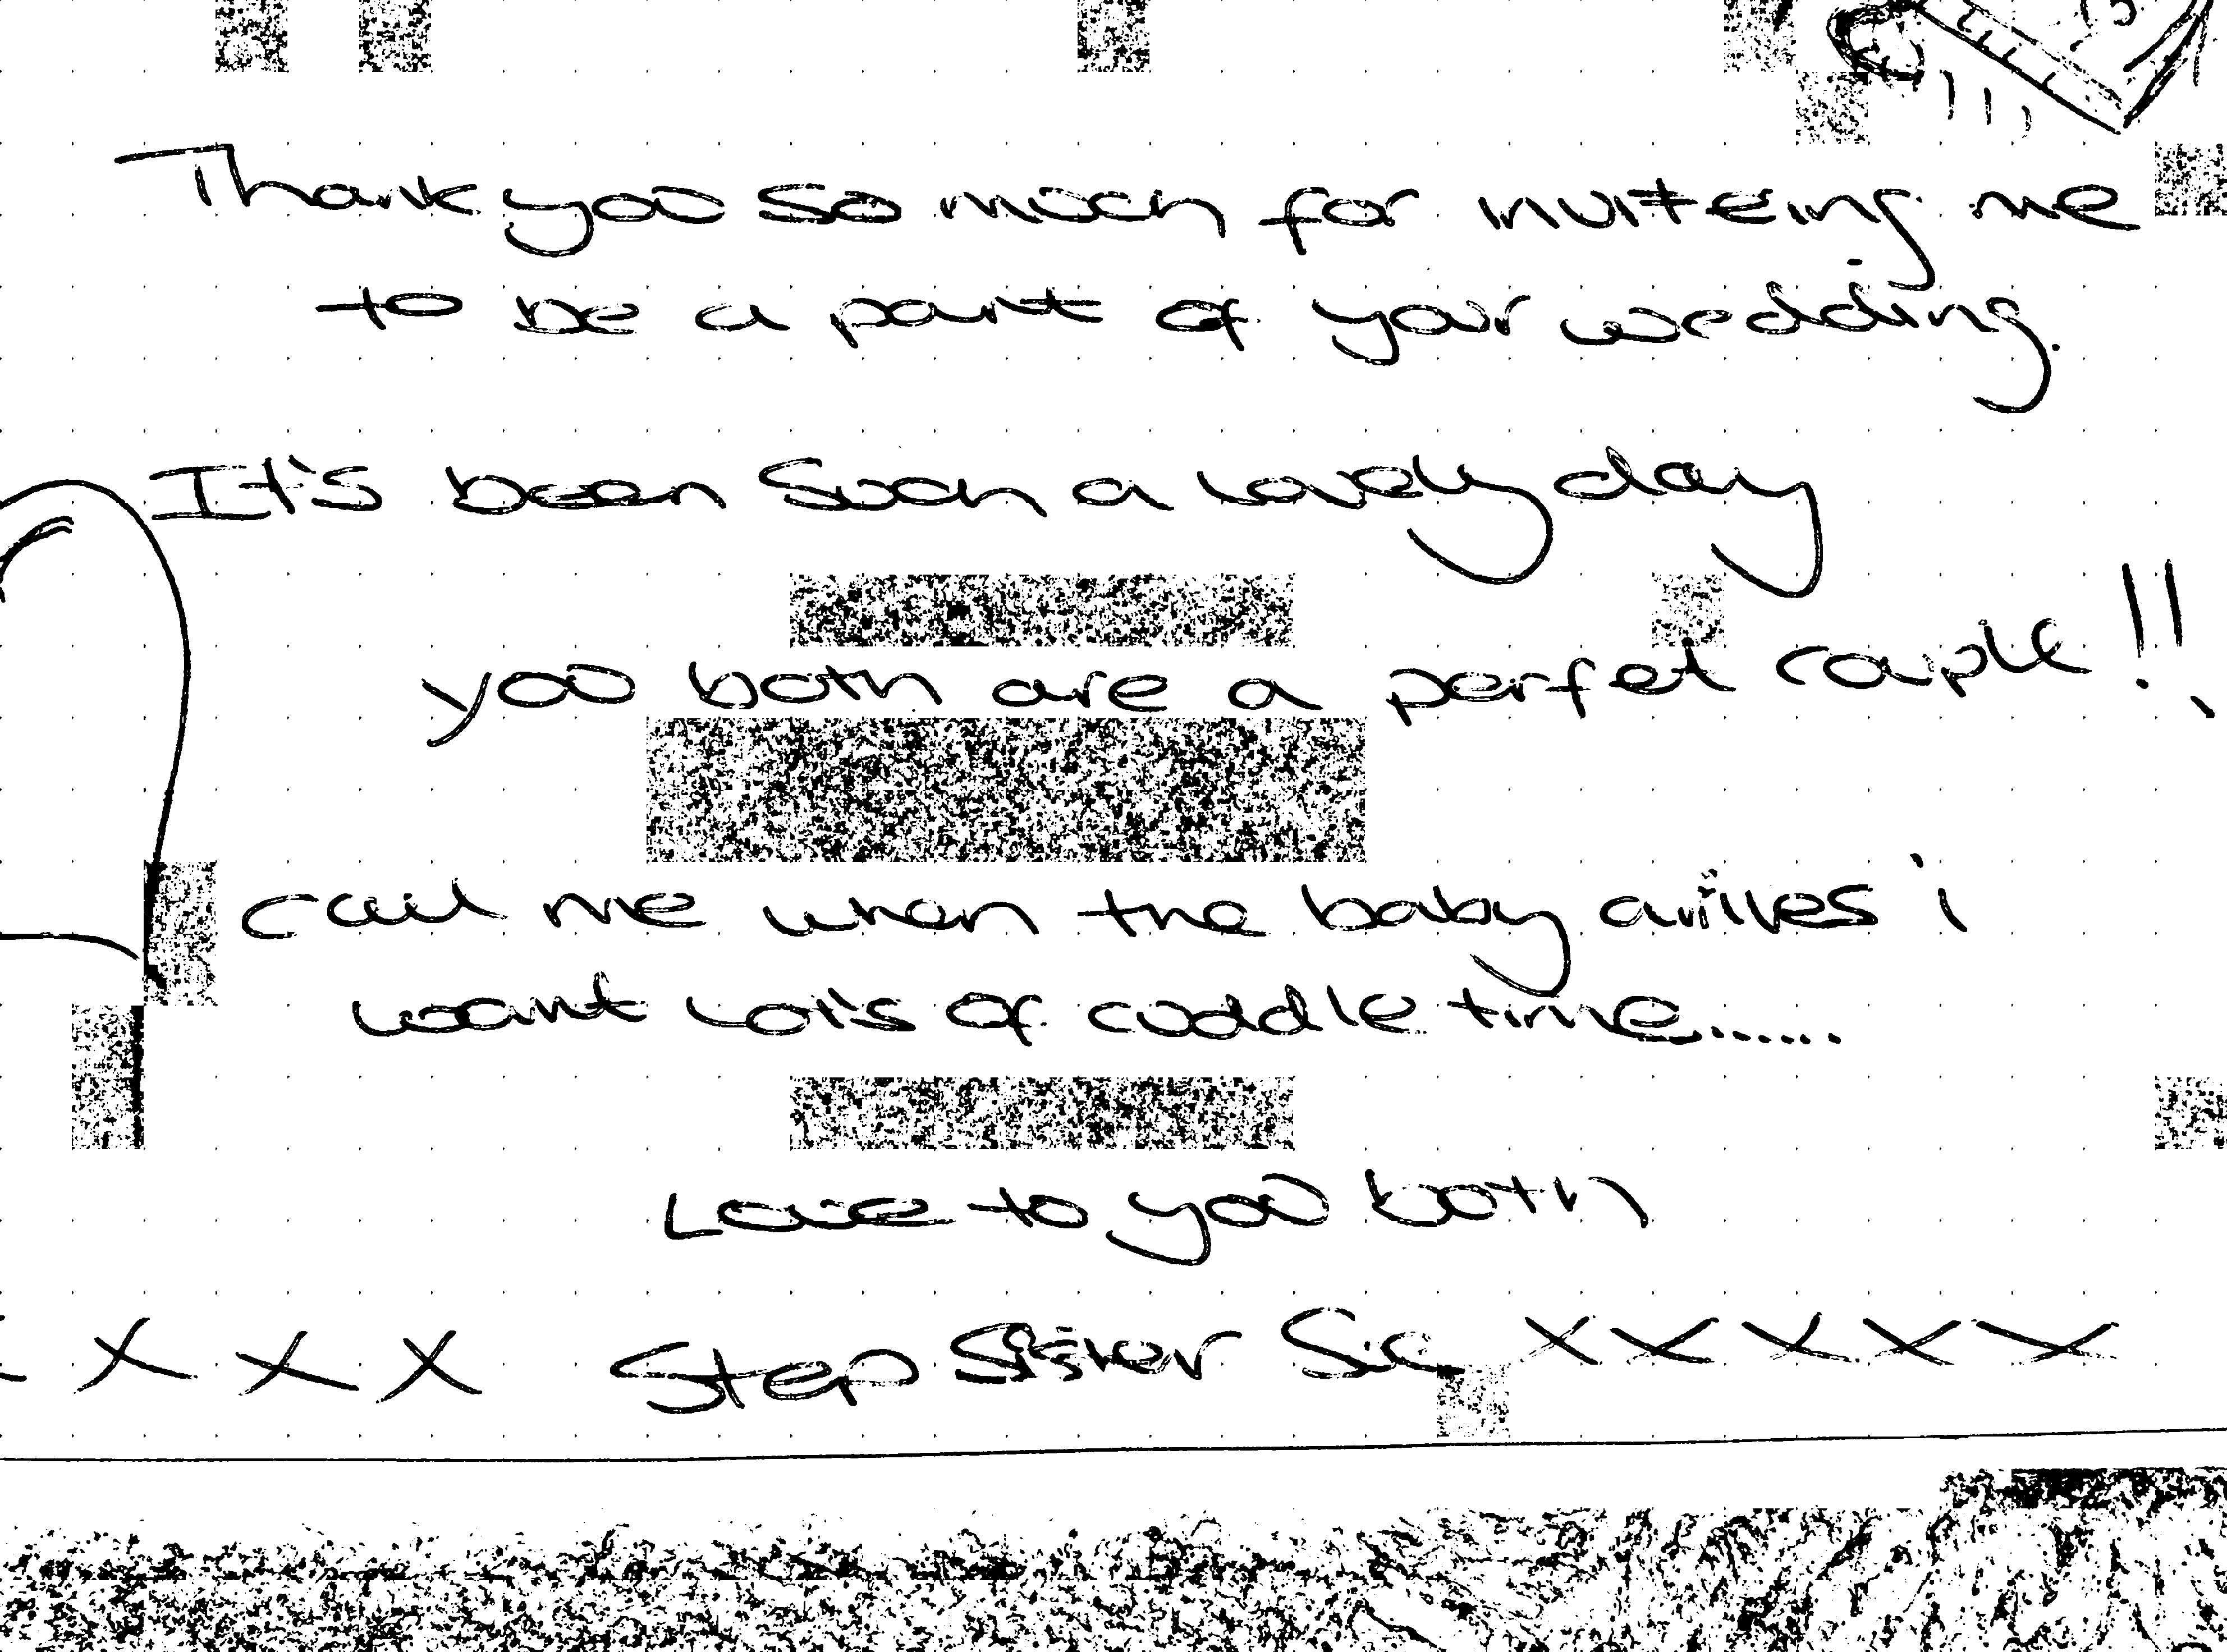 Thank you so much for inviteing me
to be a part of your wedding.
It's been such a lovely day
you both are a perfet couple!!
call me when the baby arrives i
want Lots of cuddle time......
Love to you both
x x x Step Sister x x x x x